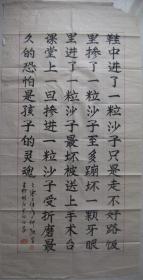 鞋中进了一粒沙子只是走不好路饭
里掺了一粒沙子至多蹦坏一颗牙眼
里进了一粒沙子最坏被送上手术台
课堂上一旦掺进一粒沙子受折磨最
久的恐怕是孩子的灵魂